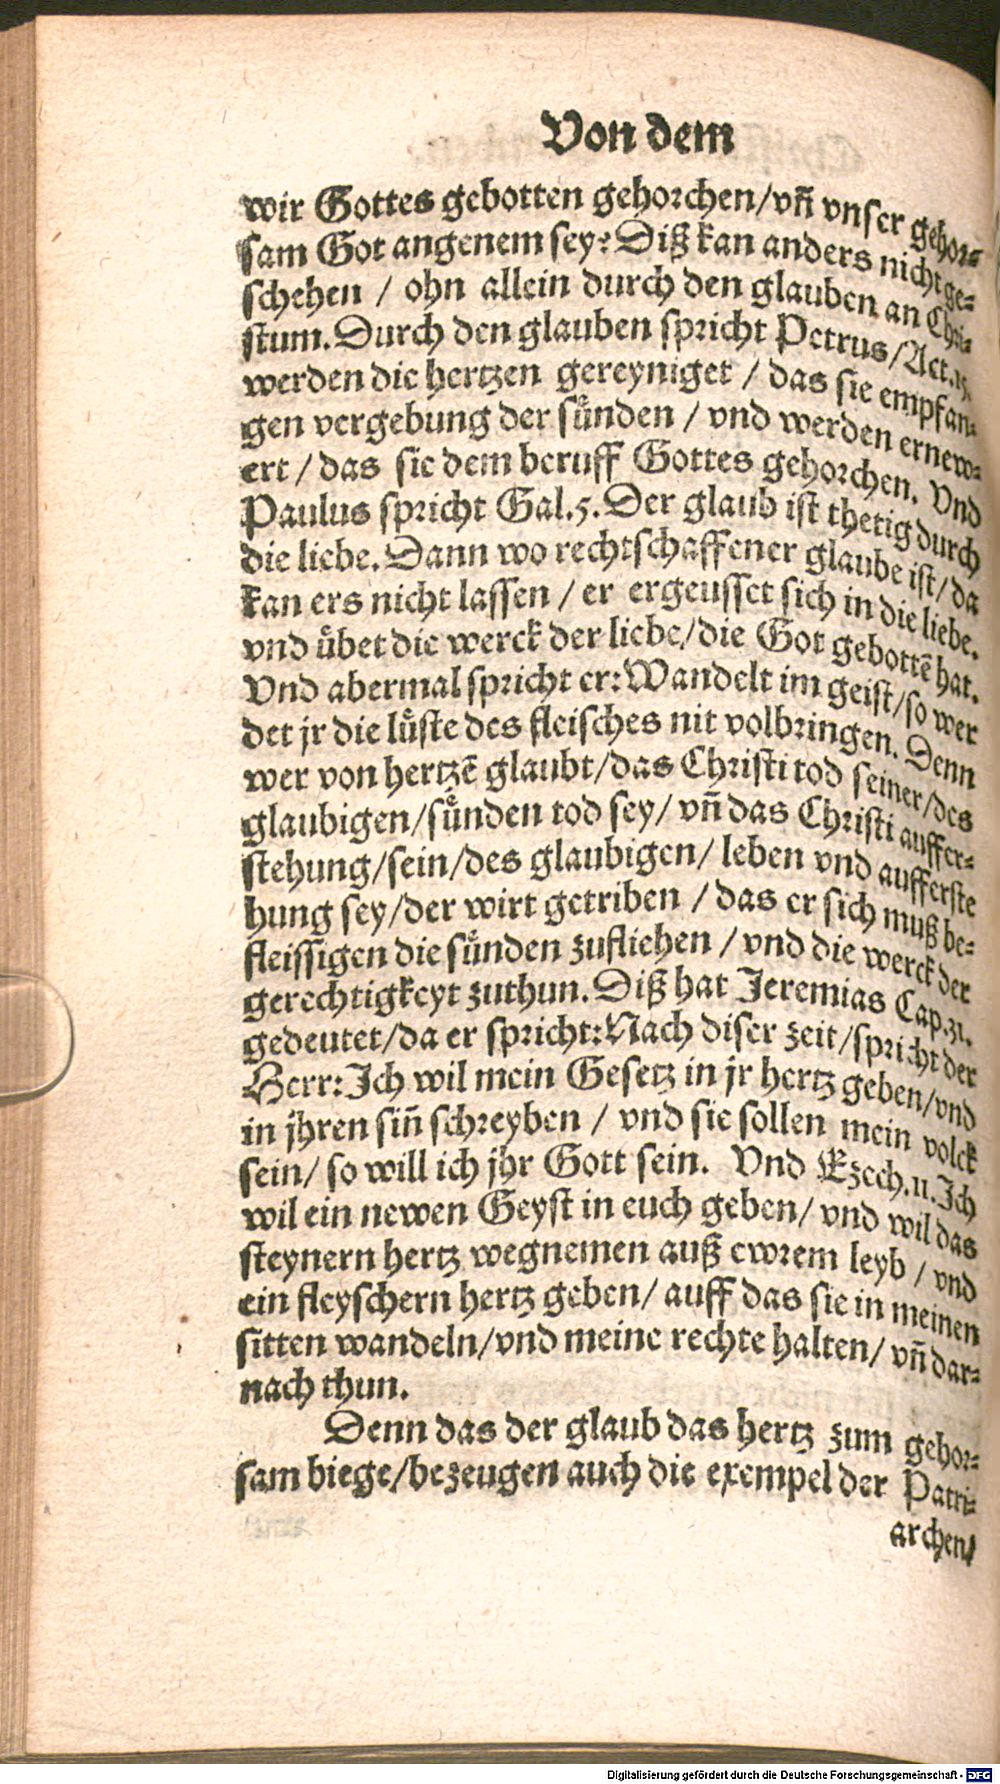 Von dem
wir Gottes gebotten gehorchen/vñ vnser gehor-
sam Got angenem sey? Diß kan anders nicht ge-
schehen / ohn allein durch den glauben an Chri-
stum. Durch den glauben spricht Petrus/Act.15.
werden die hertzen gereyniget / das sie empfan-
gen vergebung der sünden / vnd werden ernew-
ert / das sie dem beruff Gottes gehorchen. Vnd
Paulus spricht Gal.5. Der glaub ist thetig durch
die liebe. Dann wo rechtschaffener glaube ist/da
kan ers nicht lassen / er ergeusset sich in die liebe.
vnd übet die werck der liebe/die Got gebottẽ hat.
Vnd abermal spricht er: Wandelt im geist/so wer
det jr die lüste des fleisches nit volbringen. Denn
wer von hertzẽ glaubt/das Christi tod seiner/des
glaubigen/sünden tod sey/ vñ das Christi auffer-
stehung/sein/des glaubigen/ leben vnd aufferste
hung sey/der wirt getriben / das er sich muß be-
fleissigen die sünden zufliehen / vnd die werck der
gerechtigkeyt zuthun. Diß hat Jeremias Cap.31.
gedeutet/da er spricht: Nach diser zeit/spricht der
Herr: Ich wil mein Gesetz in jr hertz geben/vnd
in jhren siñ schreyben / vnd sie sollen mein volck
sein/ so will ich jhr Gott sein. Vnd Ezech.11. Ich
wil ein newen Geyst in euch geben/ vnd wil das
steynern hertz wegnemen auß ewrem leyb / vnd
ein fleyschern hertz geben/ auff das sie in meinen
sitten wandeln/vnd meine rechte halten/ vñ dar-
nach thun.
Denn das der glaub das hertz zum gehor-
sam biege/bezeugen auch die exempel der Patri-
archen/
Digitalisierung gefördert durch die Deutsche Forschungsgemeinschaft - DFG